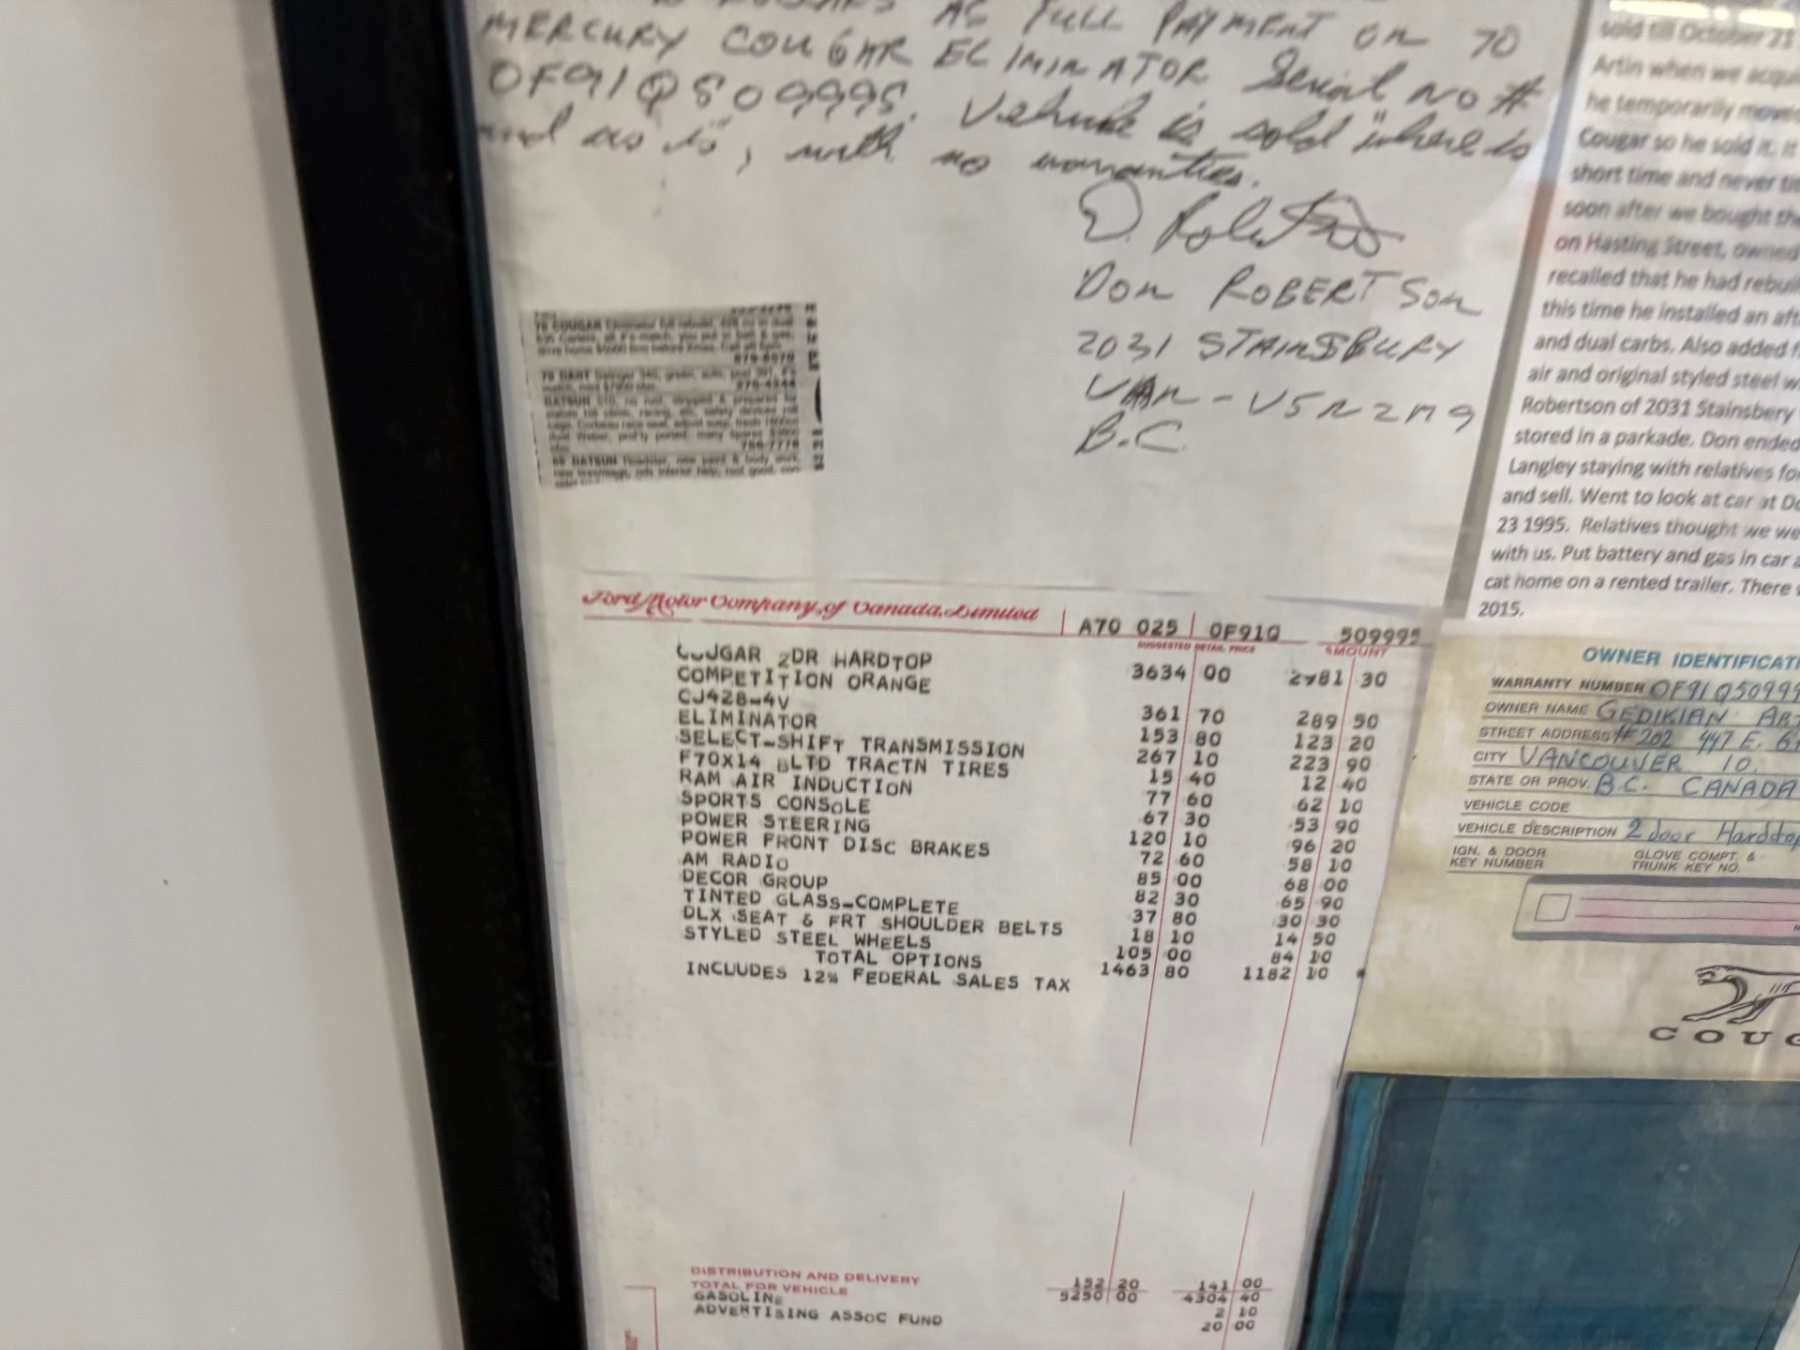 AS FULL PAYMENT ON 70
MERCURY COUGAR ELIMINATOR Serial no #
OF91Q509995. Vehicle is sold "where is
and as is", with no warranties.
D. Robertson
DON ROBERTSON
2031 STAINSBURY
VAN - V5N 2M9
B.C.
70 COUGAR Eliminator full rebuild,
70 DART Swinger 340, green, auto,
DATSUN 510, no rust, stripped & prepared for
69 DATSUN Roadster, new paint & body work,
sold till October 23
Artin when we acqui
he temporarily move
Cougar so he sold it. It
short time and never tit
soon after we bought the
on Hasting Street, owned
recalled that he had rebuil
this time he installed an aft
and dual carbs. Also added f
air and original styled steel w
Robertson of 2031 Stainsbery
stored in a parkade. Don ended
Langley staying with relatives fo
and sell. Went to look at car at Do
23 1995. Relatives thought we we
with us. Put battery and gas in car a
cat home on a rented trailer. There
2015.
Ford Motor Company, of Canada, Limited A70 025 OF91Q 509995
SUGGESTED RETAIL PRICE AMOUNT
COUGAR 2DR HARDTOP 3634 00 2981 30
COMPETITION ORANGE
CJ428-4V 361 70 289 50
ELIMINATOR 153 80 123 20
SELECT-SHIFT TRANSMISSION 267 10 223 90
F70X14 BLTD TRACTN TIRES 15 40 12 40
RAM AIR INDUCTION 77 60 62 10
SPORTS CONSOLE 67 30 53 90
POWER STEERING 120 10 96 20
POWER FRONT DISC BRAKES 72 60 58 10
AM RADIO 85 00 68 00
DECOR GROUP 82 30 65 90
TINTED GLASS-COMPLETE 37 80 30 30
DLX SEAT & FRT SHOULDER BELTS 18 10 14 50
STYLED STEEL WHEELS 105 00 84 10
TOTAL OPTIONS 1463 80 1182 10
INCLUDES 12% FEDERAL SALES TAX
DISTRIBUTION AND DELIVERY 152 20 141 00
TOTAL FOR VEHICLE 5250 00 4304 40
GASOLINE 2 10
ADVERTISING ASSOC FUND 20 00
OWNER IDENTIFICATI
WARRANTY NUMBER OF91Q50999
OWNER NAME GEDIKIAN AR
STREET ADDRESS #202 447 E. 6
CITY VANCOUVER 10.
STATE OR PROV. B.C. CANADA
VEHICLE CODE
VEHICLE DESCRIPTION 2 door Hardtop
IGN. & DOOR KEY NUMBER
GLOVE COMPT. & TRUNK KEY NO.
COUG